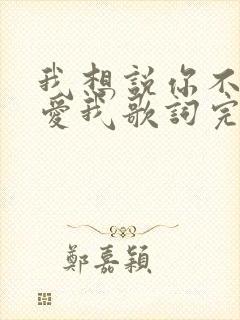 我想説你不
愛我歌詞完
鄭嘉穎